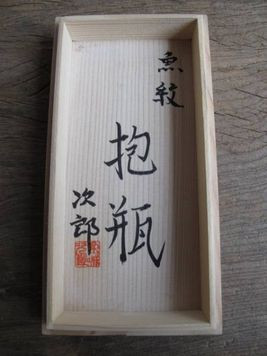 魚紋
抱瓶
次郎